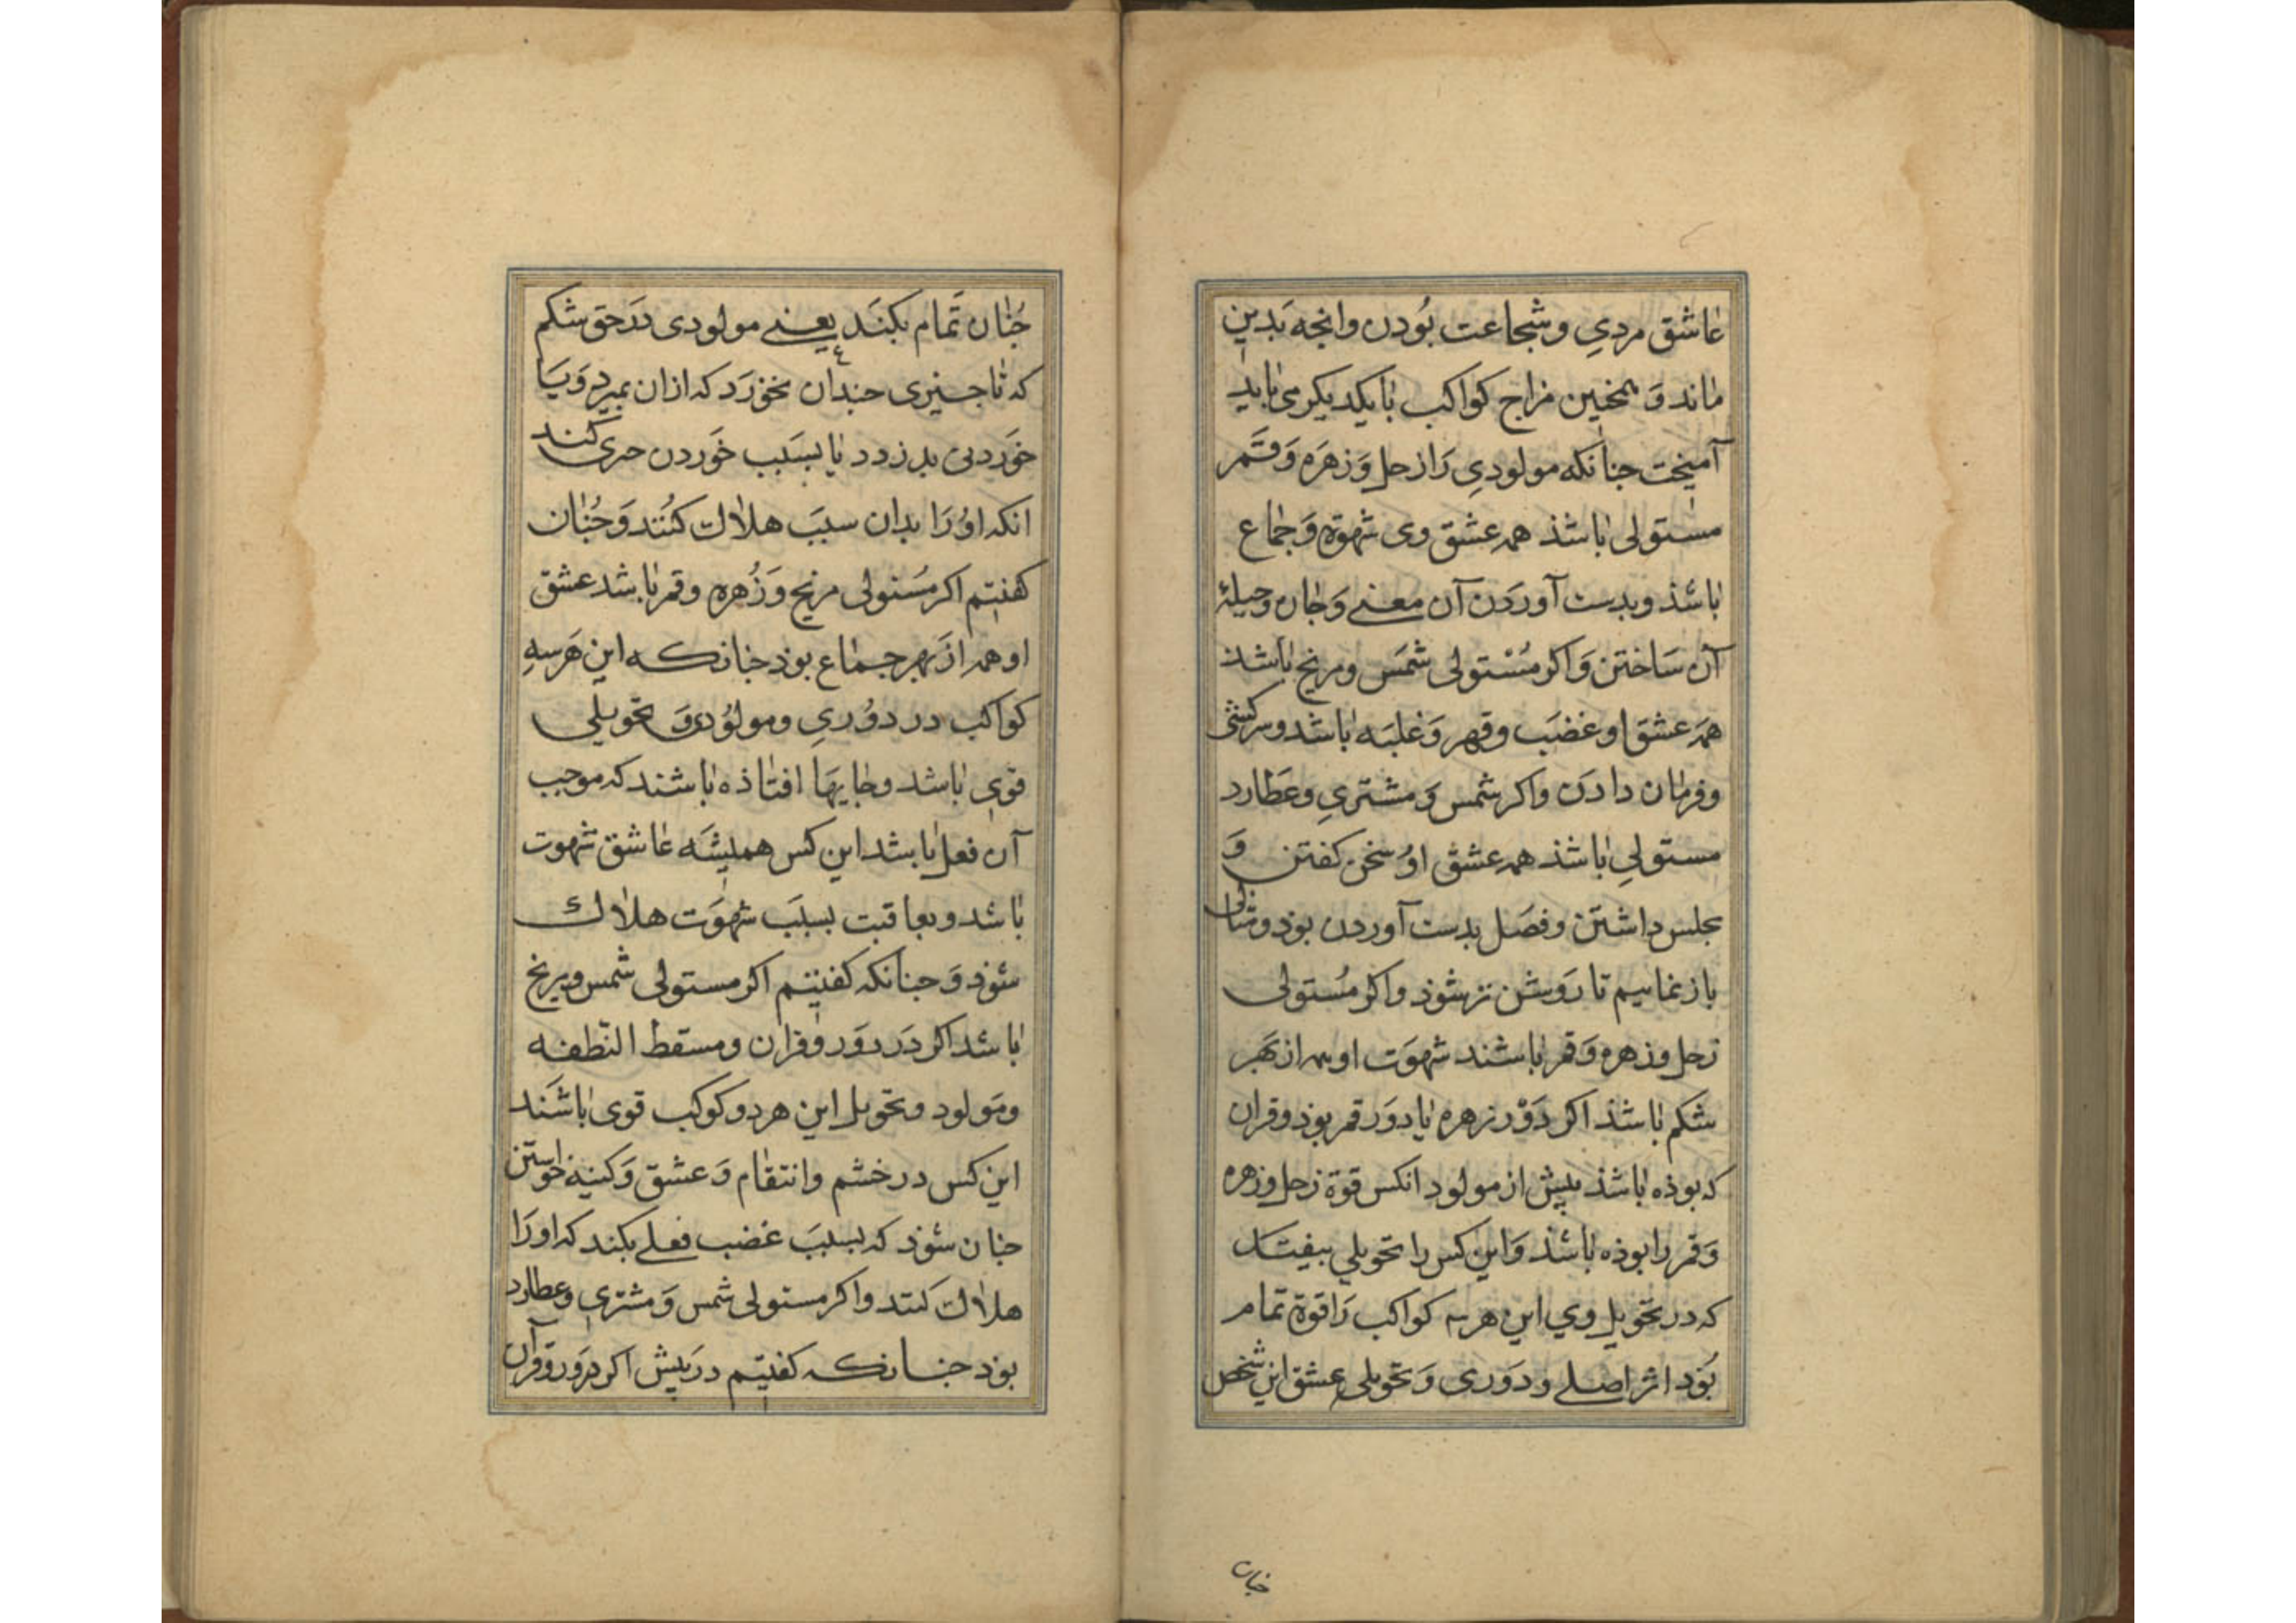 عاشق مردیِ وشجاعت بُودن وانجه بَدین
ماند وَ همخنین مزاج کواکب بایکدیکر می باید
آمیخت جنانکه مولودیِ رَا زحل وَ زهَره وَقمَر
مستولی باشذ همه عشق وی شهوة وَ جماع
باشذ وبدست آوردَن آن معنے وَجان وحیلهٔ
آن سَاختن وَاکر مُسْتولی شمَس ومریخ باشذ
همَه عشقَ او غضَب وقهر وَغلبَه باشد وسرکشی
وفرمان دادَن واکر شمس وَ مشتریِ وعَطارد
مستولیِ باشذ همه عشق اوُ سخن کفتن وَ
مجلس داشتَن وفصَل بدست آوردن بوذ ومثالی
باز نماییم تا رَوشن تر شوذ واکر مُستولی
زحل وزهره وَقمر باشند شهوَت او همه از بَهر
شکم باشذ اکر دَوْر زهره یا دوَر قمر بوذ وقران
که بوذه باشذ بیش از مولود انکس قوة زحل وزهره
وَقمر را بوذه باشذ وَاین کس را تحویلی بیفتد
که در تحَویل وی این هر سه کواکب رَا قوة تمام
بُوذ اثر اصلے ودَوری وَ تحویلی عشق این شخص
جنان
جُنان تَمام بکنَد یعنے مولودی دَرحق شکم
که تا جیزی جندان بخورَد که ازان بمیرد وَیا
خوَردنی بدزدد یا بسَبب خوَردن حری کند
انکه اوُ رَا بدان سببَ هلاک کنُند وَجُنان
کفتیم اکر مسُتولی مریخ وَزُهره وقمر باشد عشق
او همه ازَ بهر جماع بوذ جنانکه این هَرسهِ
کواکب در دوُریِ ومولوُدی وَ تحویلی
قوی باشد وجایهَا افتاذه باشند که موجب
آن فعل باشد این کس همیشَه عاشق شهوت
باشد وبعاقبت بسبَب شهوَت هلاک
شوذ وَ جنانکه کفتیم اکر مستولی شمس ومریخ
باشد اکر دَر دوَر وقران ومسقط النّطفه
ومَولود وتحویل این هر دو کوکب قوی باشَند
این کس در خشم وانتقام وَ عشق وَ کینه خواستن
جنان شوذ که بسببَ غضب فعلے بکند که اورَا
هلاک کنند واکر مستولی شمس وَ مشتریِ وعطارد
بوذ جنانکه کفتیم در بیش اکر دَر دوَر وقرآن